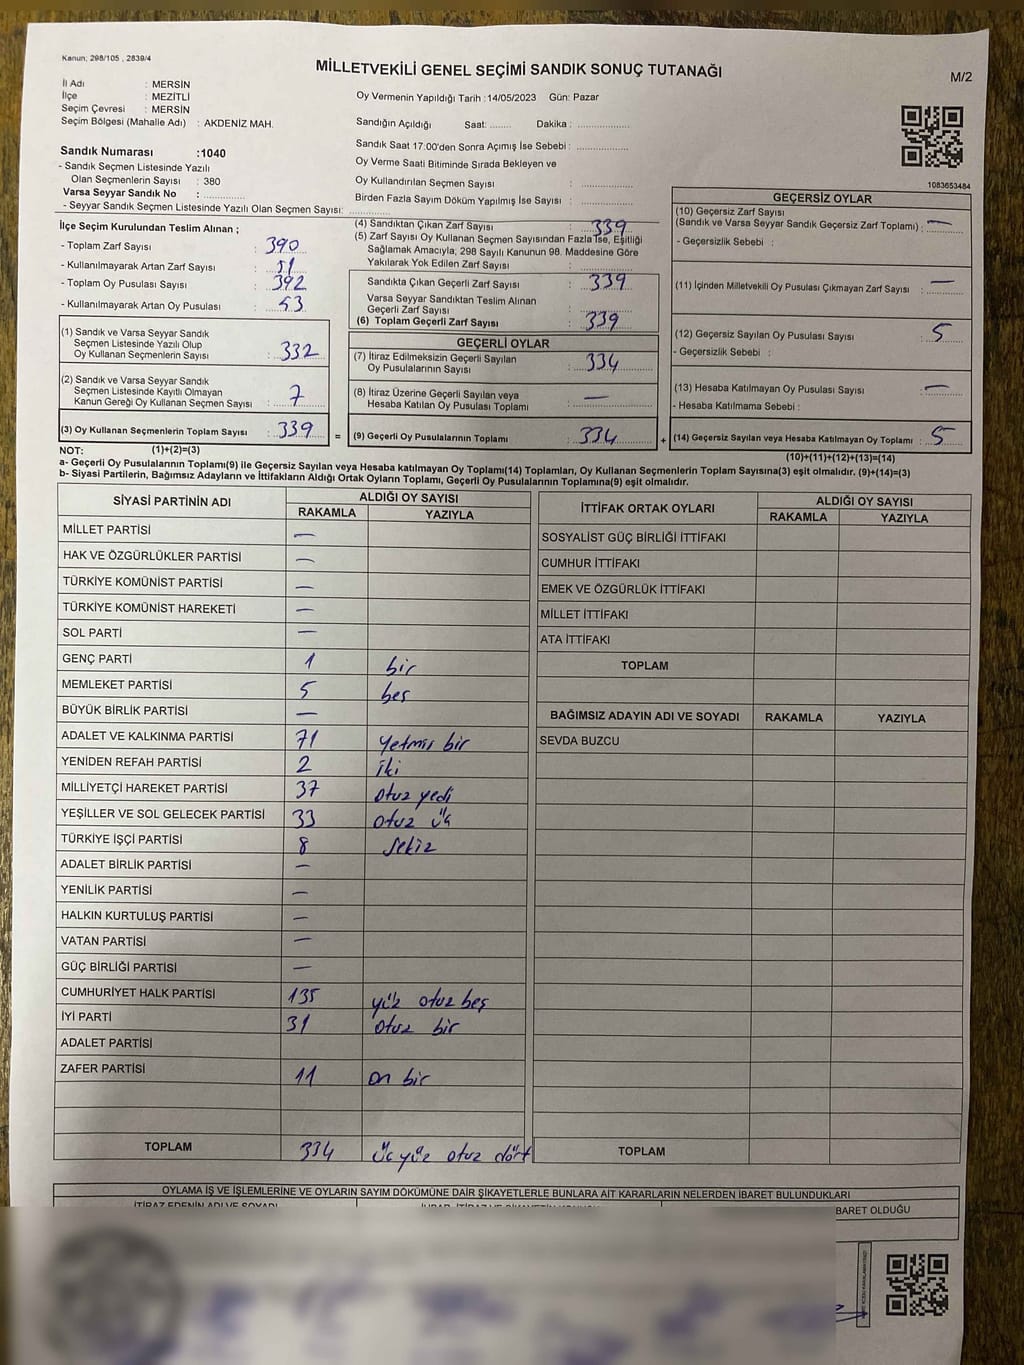 Kanun: 298/105 , 2839/4
MİLLETVEKİLİ GENEL SEÇİMİ SANDIK SONUÇ TUTANAĞI
M/2
İl Adı : MERSİN
İlçe : MEZİTLİ
Seçim Çevresi : MERSİN
Seçim Bölgesi (Mahalle Adı) : AKDENİZ MAH.
Oy Vermenin Yapıldığı Tarih :14/05/2023 Gün: Pazar
Sandığın Açıldığı Saat: ........ Dakika : ..................
Sandık Saat 17:00'den Sonra Açımış İse Sebebi : ..................
Oy Verme Saati Bitiminde Sırada Bekleyen ve
Oy Kullandırılan Seçmen Sayısı : ..................
Birden Fazla Sayım Döküm Yapılmış İse Sayısı : ..................
Sandık Numarası :1040
- Sandık Seçmen Listesinde Yazılı
Olan Seçmenlerin Sayısı : 380
Varsa Seyyar Sandık No : ..............
- Seyyar Sandık Seçmen Listesinde Yazılı Olan Seçmen Sayısı: ..............
1083653484
İlçe Seçim Kurulundan Teslim Alınan ;
- Toplam Zarf Sayısı : 390
- Kullanılmayarak Artan Zarf Sayısı : 51
- Toplam Oy Pusulası Sayısı : 392
- Kullanılmayarak Artan Oy Pusulası : 53
(1) Sandık ve Varsa Seyyar Sandık
Seçmen Listesinde Yazılı Olup
Oy Kullanan Seçmenlerin Sayısı : 332
(2) Sandık ve Varsa Seyyar Sandık
Seçmen Listesinde Kayıtlı Olmayan
Kanun Gereği Oy Kullanan Seçmen Sayısı : 7
(3) Oy Kullanan Seçmenlerin Toplam Sayısı : 339
(4) Sandıktan Çıkan Zarf Sayısı : 339
(5) Zarf Sayısı Oy Kullanan Seçmen Sayısından Fazla İse, Eşitliği
Sağlamak Amacıyla, 298 Sayılı Kanunun 98. Maddesine Göre
Yakılarak Yok Edilen Zarf Sayısı : ..............
Sandıkta Çıkan Geçerli Zarf Sayısı : 339
Varsa Seyyar Sandıktan Teslim Alınan
Geçerli Zarf Sayısı : ..............
(6) Toplam Geçerli Zarf Sayısı : 339
GEÇERLİ OYLAR
(7) İtiraz Edilmeksizin Geçerli Sayılan
Oy Pusulalarının Sayısı : 334
(8) İtiraz Üzerine Geçerli Sayılan veya
Hesaba Katılan Oy Pusulası Toplamı : —
= (9) Geçerli Oy Pusulalarının Toplamı : 334
GEÇERSİZ OYLAR
(10) Geçersiz Zarf Sayısı
(Sandık ve Varsa Seyyar Sandık Geçersiz Zarf Toplamı) : —
- Geçersizlik Sebebi :
(11) İçinden Milletvekili Oy Pusulası Çıkmayan Zarf Sayısı : —
(12) Geçersiz Sayılan Oy Pusulası Sayısı : 5
- Geçersizlik Sebebi :
(13) Hesaba Katılmayan Oy Pusulası Sayısı : —
- Hesaba Katılmama Sebebi :
+ (14) Geçersiz Sayılan veya Hesaba Katılmayan Oy Toplamı : 5
NOT: (1)+(2)=(3)
(10)+(11)+(12)+(13)=(14)
a- Geçerli Oy Pusulalarının Toplamı(9) ile Geçersiz Sayılan veya Hesaba katılmayan Oy Toplamı(14) Toplamları, Oy Kullanan Seçmenlerin Toplam Sayısına(3) eşit olmalıdır. (9)+(14)=(3)
b- Siyasi Partilerin, Bağımsız Adayların ve İttifakların Aldığı Ortak Oyların Toplamı, Geçerli Oy Pusulalarının Toplamına(9) eşit olmalıdır.
SİYASİ PARTİNİN ADI ALDIĞI OY SAYISI
RAKAMLA YAZIYLA
MİLLET PARTİSİ —
HAK VE ÖZGÜRLÜKLER PARTİSİ —
TÜRKİYE KOMÜNİST PARTİSİ —
TÜRKİYE KOMÜNİST HAREKETİ —
SOL PARTİ —
GENÇ PARTİ 1 bir
MEMLEKET PARTİSİ 5 beş
BÜYÜK BİRLİK PARTİSİ —
ADALET VE KALKINMA PARTİSİ 71 yetmiş bir
YENİDEN REFAH PARTİSİ 2 iki
MİLLİYETÇİ HAREKET PARTİSİ 37 otuz yedi
YEŞİLLER VE SOL GELECEK PARTİSİ 33 otuz üç
TÜRKİYE İŞÇİ PARTİSİ 8 sekiz
ADALET BİRLİK PARTİSİ —
YENİLİK PARTİSİ —
HALKIN KURTULUŞ PARTİSİ —
VATAN PARTİSİ —
GÜÇ BİRLİĞİ PARTİSİ —
CUMHURİYET HALK PARTİSİ 135 yüz otuz beş
İYİ PARTİ 31 otuz bir
ADALET PARTİSİ
ZAFER PARTİSİ 11 on bir
TOPLAM 334 üç yüz otuz dört
İTTİFAK ORTAK OYLARI ALDIĞI OY SAYISI
RAKAMLA YAZIYLA
SOSYALİST GÜÇ BİRLİĞİ İTTİFAKI
CUMHUR İTTİFAKI
EMEK VE ÖZGÜRLÜK İTTİFAKI
MİLLET İTTİFAKI
ATA İTTİFAKI
TOPLAM
BAĞIMSIZ ADAYIN ADI VE SOYADI RAKAMLA YAZIYLA
SEVDA BUZCU
TOPLAM
OYLAMA İŞ VE İŞLEMLERİNE VE OYLARIN SAYIM DÖKÜMÜNE DAİR ŞİKAYETLERLE BUNLARA AİT KARARLARIN NELERDEN İBARET BULUNDUKLARI
İTİRAZ EDENİN ADI VE SOYADI
BARET OLDUĞU